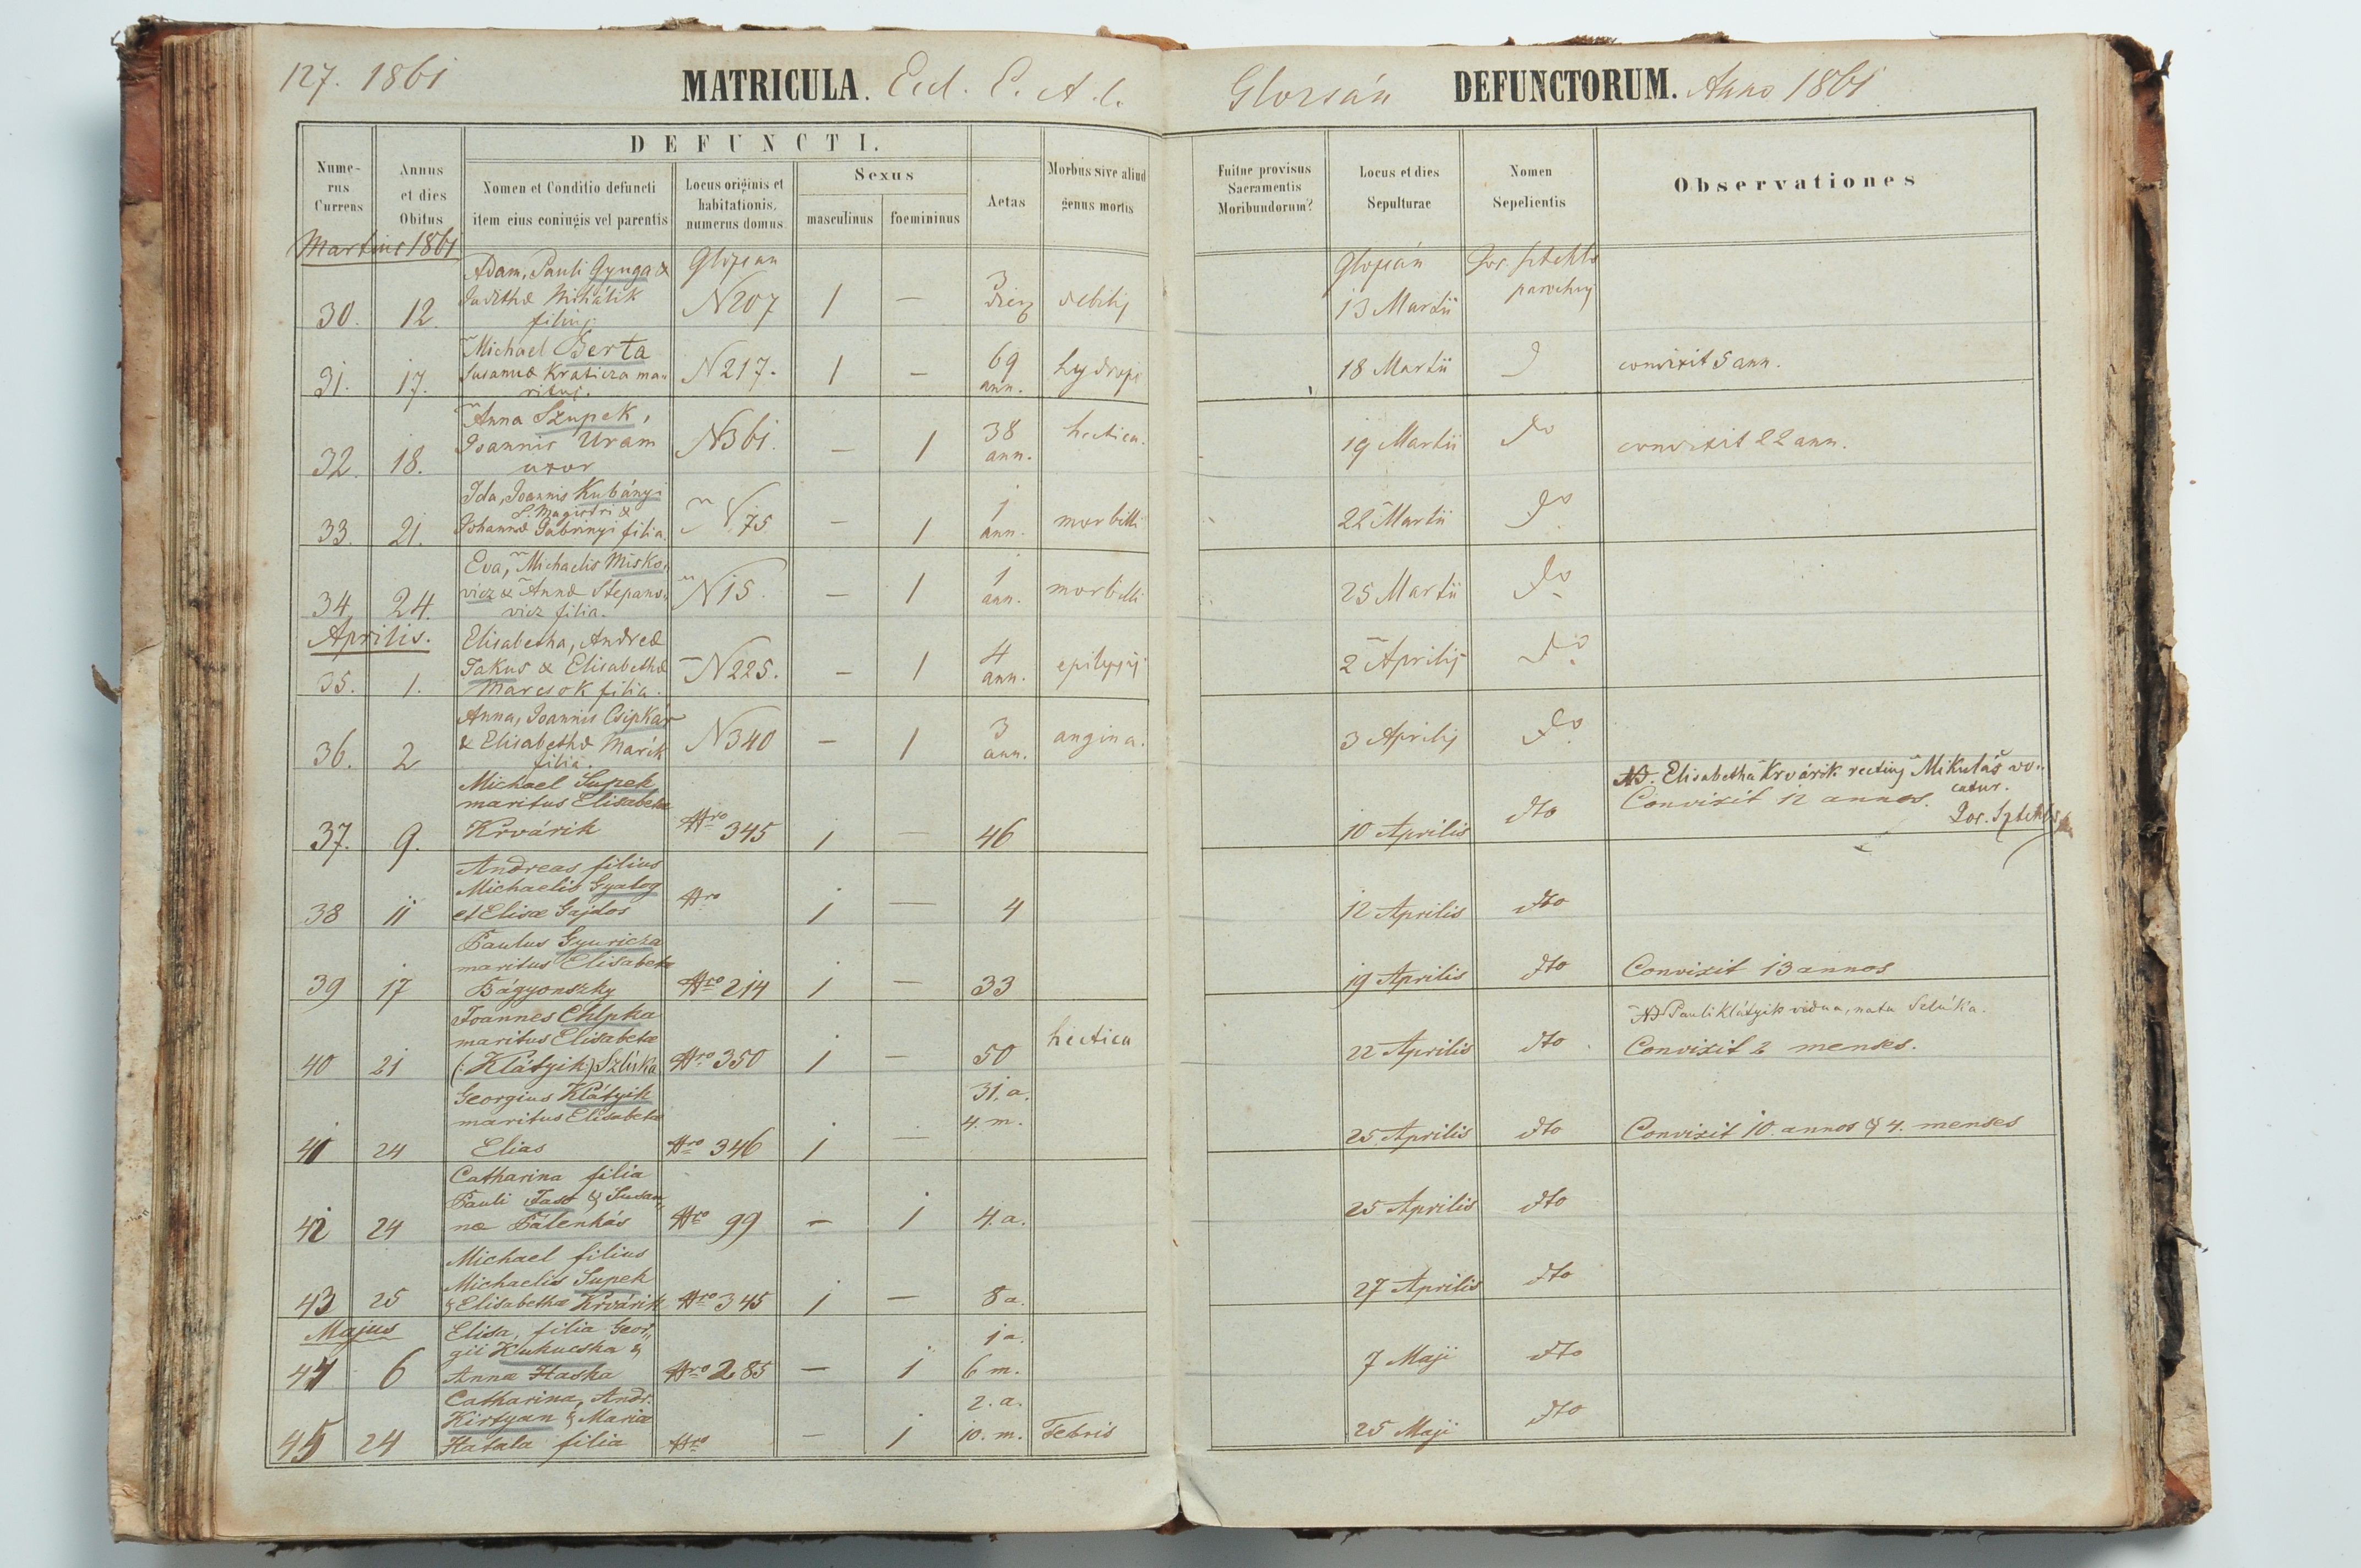 127. 1861
MATRICULA. Eccl. E. A. C.
Glozsán DEFUNCTORUM. Anno 1861
DEFUNCTI.
Numerus Currens
Annus et dies Obitus
Nomen et Conditio defuncti item eius coniugis vel parentis
Locus originis et habitationis, numerus domus
Sexus
masculinus foemininus
Aetas
Morbus sive aliud genus mortis
Fuitne provisus Sacramentis Moribundorum?
Locus et dies Sepulturae
Nomen Sepelientis
Observationes
Martius 1861
Adam, Pauli Gyuga &
Judithae Mihálik
filius.
30. 12. Glozsan N 207 1 — 3 dies debilis Glozsán 13 Martii
Michael Berta
Susannae Kraticza ma„
ritus.
31. 17. N 217. 1 — 69 ann. hydrops 18 Martii convixit 5 ann.
Anna Szupek,
Joannis Uram
uxor
32. 18. N 361. — 1 38 ann. hectica. 19 Martii do convixit 22 ann.
Ida, Joannis Kubányi
L. Magistri &
Johannae Gabrinyi filia.
33. 21. N. 75 — 1 1 ann. morbilli 22 Martii do
Eva, Michaelis Misko„
vicz & Annae Stepano„
vicz filia.
34. 24. N 15. — 1 1 ann. morbilli 25 Martii do
Aprilis.
Elisabetha, Andreae
Takus & Elisabethae
Marcsok filia.
35. 1. N 225. — 1 4 ann. 2 Aprilis do
Anna, Joannis Csipkár
& Elisabethae Marík
filia.
36. 2 N 340 — 1 3 ann. angina. 3 Aprilis do
Michael Supek
maritus Elisabetae
Krvárik
37. 9. Nro 345 1 — 46 10 Aprilis dto
NB. Elisabetha Krvárik rectius Mikulaš vo„
catur.
Convixit 12 annos.
Andreas filius
Michaelis Gyalog
et Elisae Gajdos
38 11 Nro 1 — 4 12 Aprilis dto
Paulus Gyuricza
maritus Elisabetae
Bágyonszky
39 17 Nro 214 1 — 33 19 Aprilis dto Convixit 13 annos
Joannes Chlpka
maritus Elisabetae
(:Klátyik:) Szlúka
40 21 Nro 350 1 — 50 hectica 22 Aprilis dto
NB Pauli Klátyik vidua, nata Selúka.
Convixit 2 menses.
Georgius Klátyik
maritus Elisabetae
Elias
41 24 Nro 346 1 — 31. a. 4. m. 25 Aprilis dto Convixit 10. annos & 4. menses
Catharina filia
Pauli Jaso & Susan„
nae Pálenkás
42 24 Nro 99 — 1 4. a. 25 Aprilis dto
Michael filius
Michaelis Supek
& Elisabethae Krvárik
43 25 Nro 345 1 — 8 a. 27 Aprilis dto
Majus
Elisa, filia Geor„
gii Kukucska &
Annae Haska
44 6 Nro 285 — 1 1 a. 6 m. 7 Maji dto
Catharina, Andr.
Kirtyan & Mariae
Hatala filia
45 24 Nro — 1 2. a. 10. m. Febris 25 Maji dto